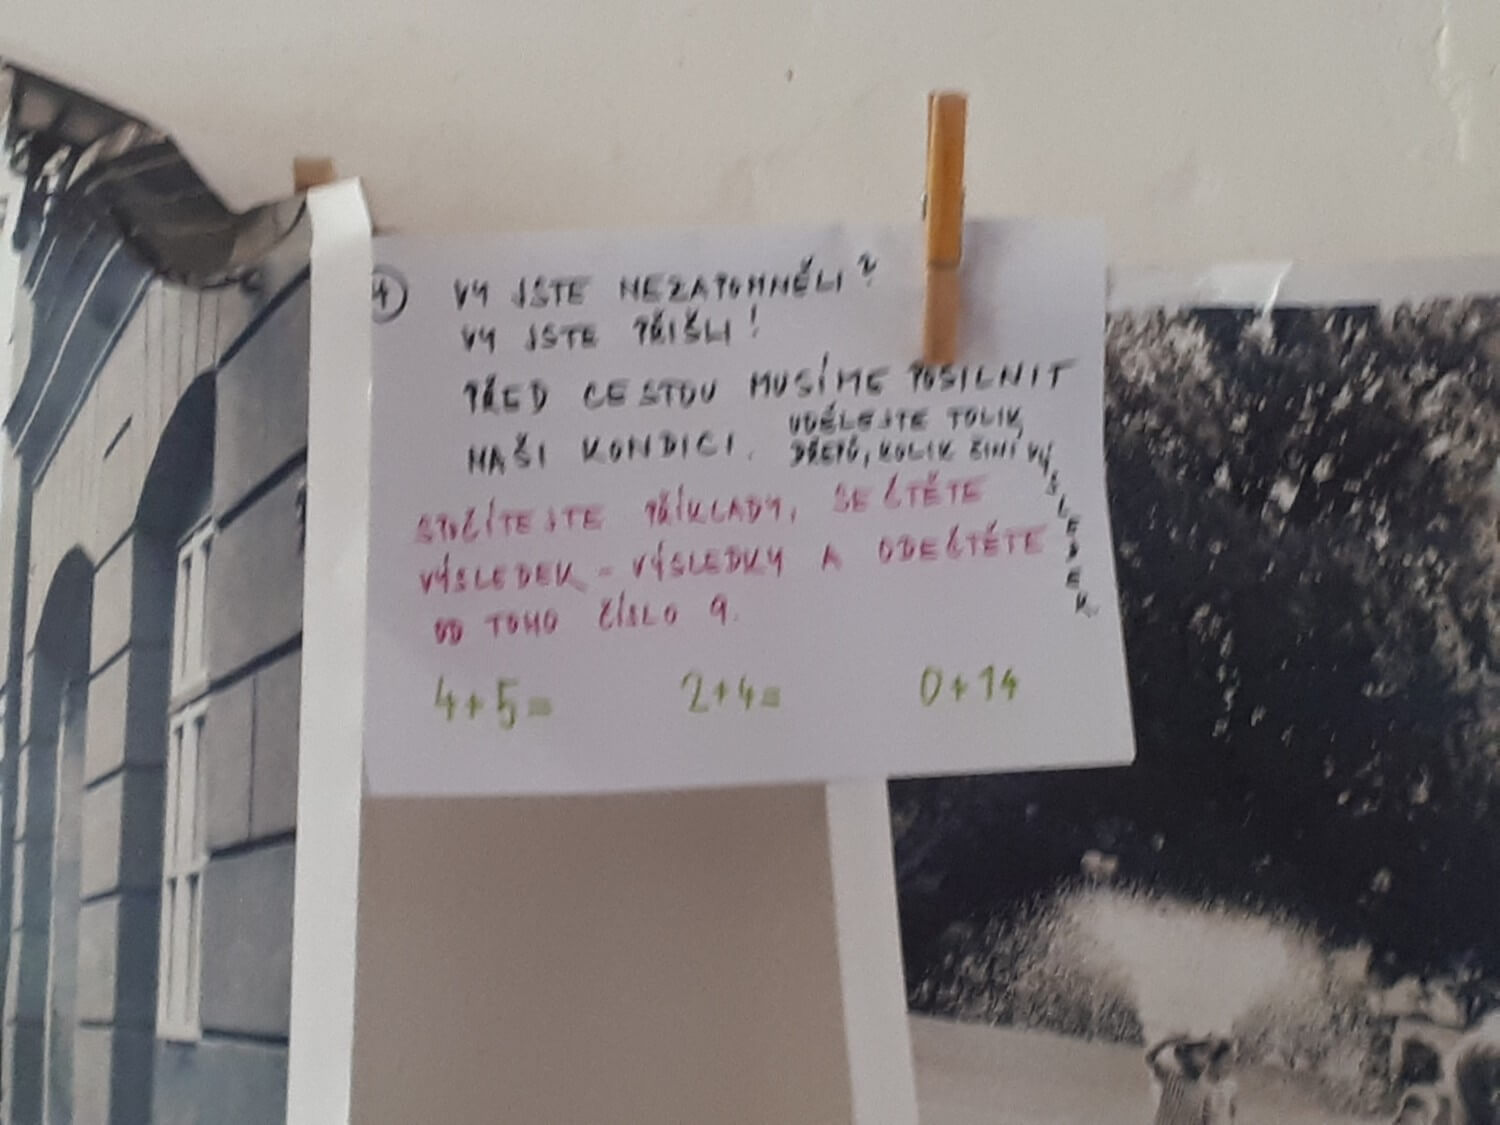 1) VY JSTE NEZAPOMNĚLI?
VY JSTE PŘIŠLI!
PŘED CESTOU MUSÍME POSILNIT
NAŠI KONDICI. UDĚLEJTE TOLIK
DŘEPŮ, KOLIK ČINÍ VÝSLEDEK
SPOČÍTEJTE PŘÍKLADY, SEČTĚTE
VÝSLEDEK - VÝSLEDKY A ODEČTĚTE
OD TOHO ČÍSLO 9.
4+5= 2+4= 0+14